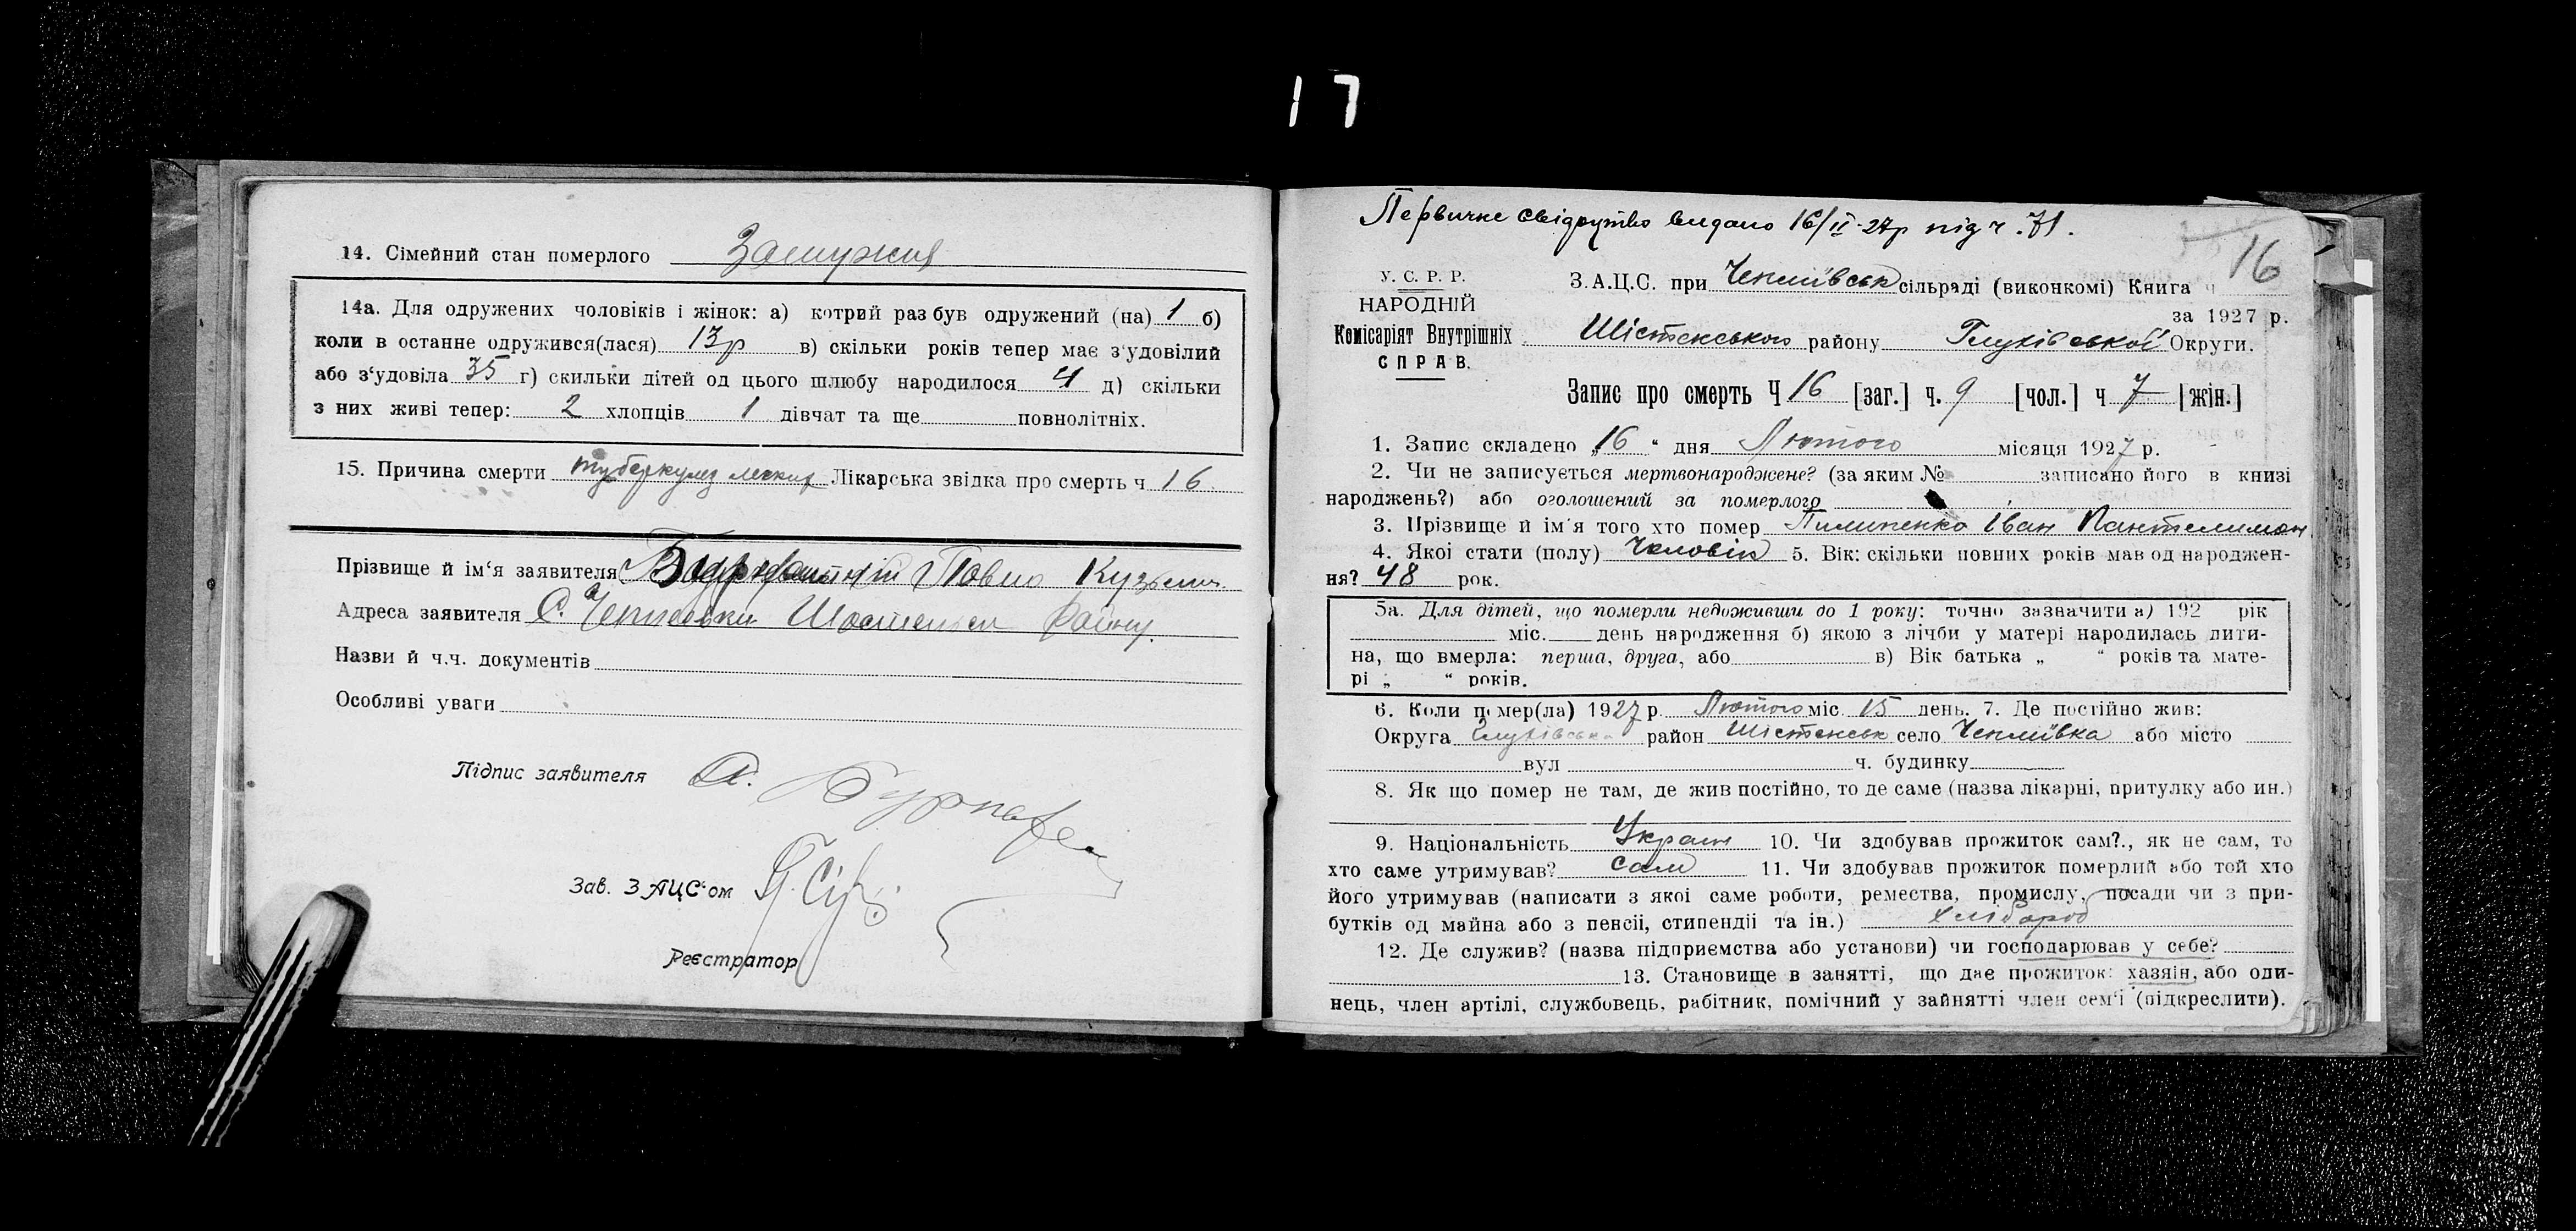 17
14. Сімейний стан померлого Замужня
14а. Для одружених чоловіків і жінок: а) котрий раз був одружений (на) 1 б)
коли в останне одружився(лася) 13р в) скільки років тепер має з'удовілий
або з'удовіла 35 г) скильки дітей од цього шлюбу народилося 4 д) скільки
з них живі тепер: 2 хлопців 1 дівчат та ще повнолітніх.
15. Причина смерти туберкулез легких Лікарська звідка про смерть ч 16
Прізвище й ім'я заявителя Павло Кузьмич
Адреса заявителя С. Чеплеевки району.
Назви й ч.ч. документів
Особливі уваги
Підпис заявителя
Зав. ЗАЦС'ом
Реєстратор
Первичне свідоцтво видано 16/II-27р під ч. 71.
16
У. С. Р. Р.
НАРОДНІЙ
Комісаріят Внутрішніх
СПРАВ.
З.А.Ц.С. при Чепліївськ сільраді (виконкомі) Книга ч
за 1927 р.
Шістенського району Глухівської Округи.
Запис про смерть Ч 16 [заг.] ч. 9 [чол.] ч 7 [жін.]
1. Запис складено „16 “ дня Лютого місяця 1927 р.
2. Чи не записується мертвонароджене? (за яким № записано його в книзі
народжень?) або оголошений за померлого
3. Прізвище й ім'я того хто помер Пилипенко Іван Пантелимон
4. Якої стати (полу) Чоловік 5. Вік: скільки повних років мав од народжен-
ня? 48 рок.
5а. Для дітей, що померли недоживши до 1 року: точно зазначити а) 192 рік
міс. день народження б) якою з лічби у матері народилась дити-
на, що вмерла: перша, друга, або в) Вік батька „ “ років та мате-
рі „ “ років.
6. Коли помер(ла) 1927 р. Лютого міс. 15 день. 7. Де постійно жив:
Округа Глухівська район Шістенськ село Чепліївка або місто
вул ч. будинку
8. Як що помер не там, де жив постійно, то де саме (назва лікарні, притулку або ин.)
9. Національність Україн 10. Чи здобував прожиток сам?., як не сам, то
хто саме утримував? сам 11. Чи здобував прожиток померлий або той хто
його утримував (написати з якої саме роботи, ремества, промислу, посади чи з при-
бутків од майна або з пенсії, стипендії та ін.) хлібороб
12. Де служив? (назва підприємства або установи) чи господарював у себе?
13. Становище в занятті, що дає прожиток: хазяін, або оди-
нець, член артілі, службовець, рабітник, помічний у зайнятті член сем'ї (підкреслити).